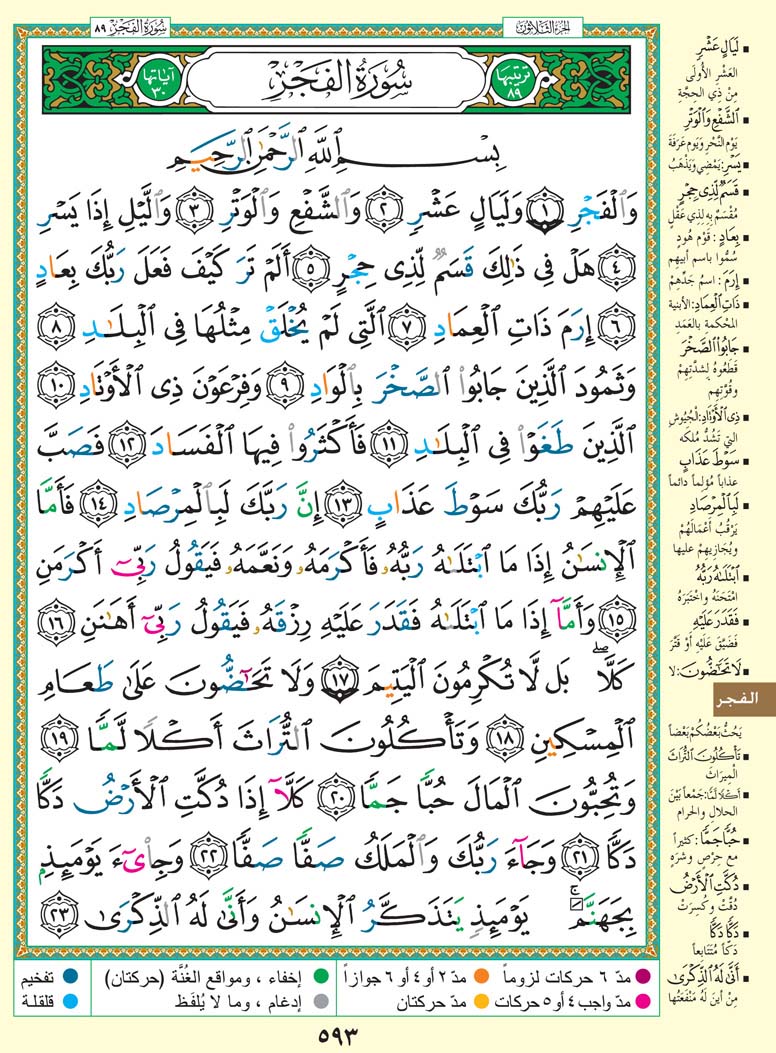 الجزء الثلاثون
سُورَةُ الفَجْرِ ٨٩
ترتيبها ٨٩
سُورَةُ الفَجْرِ
آياتها ٣٠
بِسْمِ اللَّهِ الرَّحْمَٰنِ الرَّحِيمِ
وَالْفَجْرِ ١ وَلَيَالٍ عَشْرٍ ٢ وَالشَّفْعِ وَالْوَتْرِ ٣ وَاللَّيْلِ إِذَا يَسْرِ
٤ هَلْ فِي ذَٰلِكَ قَسَمٌ لِّذِي حِجْرٍ ٥ أَلَمْ تَرَ كَيْفَ فَعَلَ رَبُّكَ بِعَادٍ
٦ إِرَمَ ذَاتِ الْعِمَادِ ٧ الَّتِي لَمْ يُخْلَقْ مِثْلُهَا فِي الْبِلَادِ ٨
وَثَمُودَ الَّذِينَ جَابُوا الصَّخْرَ بِالْوَادِ ٩ وَفِرْعَوْنَ ذِي الْأَوْتَادِ ١٠
الَّذِينَ طَغَوْا فِي الْبِلَادِ ١١ فَأَكْثَرُوا فِيهَا الْفَسَادَ ١٢ فَصَبَّ
عَلَيْهِمْ رَبُّكَ سَوْطَ عَذَابٍ ١٣ إِنَّ رَبَّكَ لَبِالْمِرْصَادِ ١٤ فَأَمَّا
الْإِنسَانُ إِذَا مَا ابْتَلَاهُ رَبُّهُ فَأَكْرَمَهُ وَنَعَّمَهُ فَيَقُولُ رَبِّي أَكْرَمَنِ
١٥ وَأَمَّا إِذَا مَا ابْتَلَاهُ فَقَدَرَ عَلَيْهِ رِزْقَهُ فَيَقُولُ رَبِّي أَهَانَنِ ١٦
كَلَّا ۖ بَل لَّا تُكْرِمُونَ الْيَتِيمَ ١٧ وَلَا تَحَاضُّونَ عَلَىٰ طَعَامِ
الْمِسْكِينِ ١٨ وَتَأْكُلُونَ التُّرَاثَ أَكْلًا لَّمًّا ١٩
وَتُحِبُّونَ الْمَالَ حُبًّا جَمًّا ٢٠ كَلَّا إِذَا دُكَّتِ الْأَرْضُ دَكًّا
دَكًّا ٢١ وَجَاءَ رَبُّكَ وَالْمَلَكُ صَفًّا صَفًّا ٢٢ وَجِايءَ يَوْمَئِذٍ
بِجَهَنَّمَ ۚ يَوْمَئِذٍ يَتَذَكَّرُ الْإِنسَانُ وَأَنَّىٰ لَهُ الذِّكْرَىٰ ٢٣
لَيَالٍ عَشْرٍ
العَشْر الأُولَى
مِنْ ذي الحجّة
الشَّفْعِ وَالْوَتْرِ
يَوْمِ النَّحْرِ وَيَوْمِ عَرَفَةَ
يَسْرِ: يَمْضِي وَيَذْهَبُ
قَسَمٌ لِّذِي حِجْرٍ
مُقْسَمٌ بِهِ لِذي عَقْلٍ
بِعَادٍ: قَوْمِ هُودٍ
سُمُّوا باسم أبيهم
إِرَمَ: اسمُ جَدِّهِمْ
ذَاتِ الْعِمَادِ: الأبنية
المُحْكَمة بالعَمَدِ
جَابُوا الصَّخْرَ
قَطَعُوهُ لِشِدَّتِهِمْ
وقُوَّتِهِم
ذِي الْأَوْتَادِ: الجُيُوشِ
التي تَشُدُّ مُلكَه
سَوْطَ عَذَابٍ
عذاباً مُؤلماً دائماً
لَبِالْمِرْصَادِ
يَرْقُبُ أَعْمَالَهُمْ
ويُجازِيهِمْ عليها
ابْتَلَاهُ رَبُّهُ
امْتَحَنَهُ وَاخْتَبَرَهُ
فَقَدَرَ عَلَيْهِ
فَضَيَّقَ عَلَيْهِ أَوْ قَتَّرَ
لَا تَحَاضُّونَ: لا
الفجر
يَحُثُّ بَعْضُكُمْ بَعْضاً
تَأْكُلُونَ التُّرَاثَ
الْمِيرَاثَ
أَكْلًا لَّمًّا: جَمْعاً بَيْنَ
الحلال والحرام
حُبًّا جَمًّا: كثيراً
مع حِرْصٍ وشَرَهٍ
دُكَّتِ الْأَرْضُ
دُقَّتْ وَكُسِرَتْ
دَكًّا دَكًّا
دَكّاً مُتَتَابِعاً
أَنَّىٰ لَهُ الذِّكْرَىٰ
مِنْ أَيْنَ لَهُ مَنْفَعَتُها
مدّ ٦ حركات لزوماً
مدّ ٢ أو ٤ أو ٦ جوازاً
إخفاء ، ومواقع الغُنَّة (حركتان)
تفخيم
مدّ واجب ٤ أو ٥ حركات
مدّ حركتان
إدغام ، وما لا يُلفَظ
قلقلة
٥٩٣